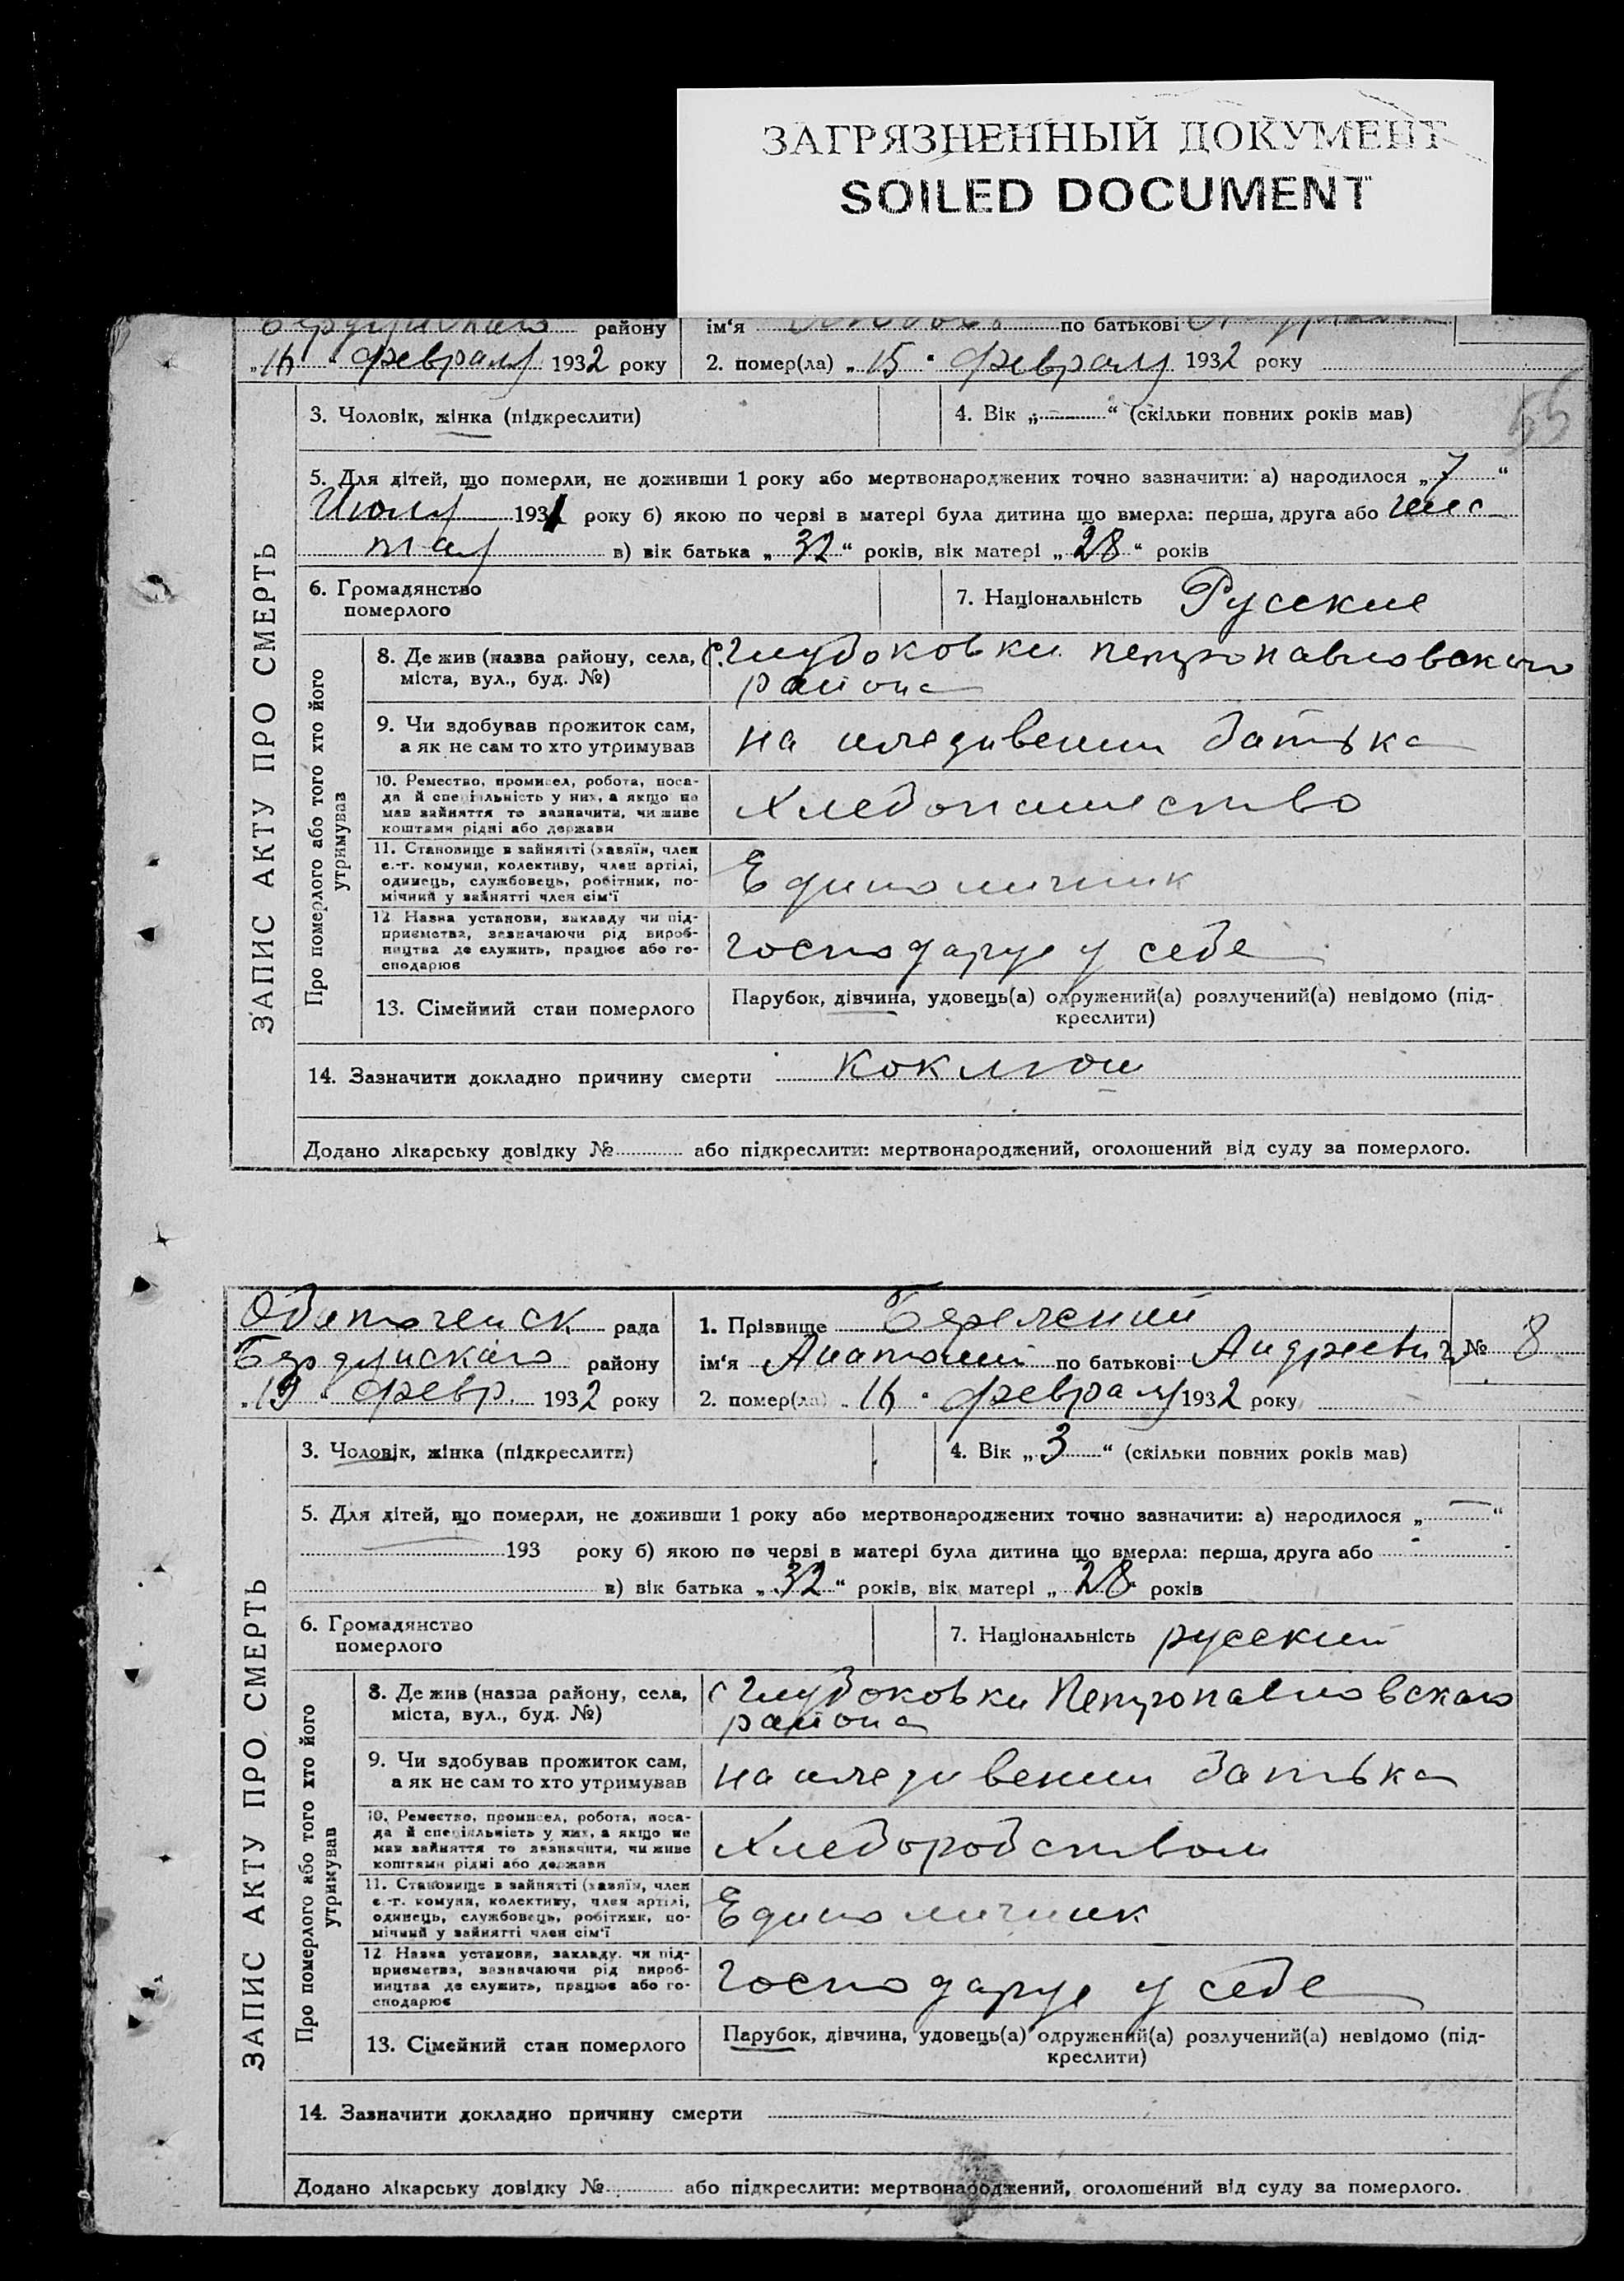 ЗАГРЯЗНЕННЫЙ ДОКУМЕНТ
SOILED DOCUMENT
району ім'я по батькові
„16“ февраля 1932 року 2. помер(ла) „15“ февраля 1932 року
3. Чоловік, жінка (підкреслити) 4. Вік „—“ (скільки повних років мав)
55
5. Для дітей, що померли, не доживши 1 року або мертвонароджених точно зазначити: а) народилося „7“
Июля 1931 року б) якою по черзі в матері була дитина що вмерла: перша, друга або шес
тая в) вік батька „32“ років, вік матері „28“ років
6. Громадянство
померлого
7. Національність Русские
ЗАПИС АКТУ ПРО СМЕРТЬ
Про померлого або того хто його
утримував
8. Де жив (назва району, села,
міста, вул., буд. №)
с. Глубоковки петропавловского
района
9. Чи здобував прожиток сам,
а як не сам то хто утримував
на иждивении батька
10. Ремество, промисел, робота, поса-
да й спеціяльність у них, а якщо не
мав зайняття то зазначити, чи живе
коштами рідні або держави
Хлебопашество
11. Становище в зайнятті (хазяїн, член
с.-г. комуни, колективу, член артілі,
одинець, службовець, робітник, по-
мічний у зайнятті член сім'ї
Единоличник
12 Назва установи, закладу чи під-
приємства, зазначаючи рід вироб-
ництва де служить, працює або го-
сподарює
господарує у себе
13. Сімейний стан померлого
Парубок, дівчина, удовець(а) одружений(а) розлучений(а) невідомо (під-
креслити)
14. Зазначити докладно причину смерти коклюш
Додано лікарську довідку № або підкреслити: мертвонароджений, оголошений від суду за померлого.
рада 1. Прізвище
Бердянскаго району ім'я Анатолий по батькові Андреевич № 8
„19“ февр. 1932 року 2. помер(ла) „16“ февраля 1932 року
3. Чоловік, жінка (підкреслити) 4. Вік „3“ (скільки повних років мав)
5. Для дітей, що померли, не доживши 1 року або мертвонароджених точно зазначити: а) народилося „—“
193 року б) якою по черзі в матері була дитина що вмерла: перша, друга або
в) вік батька „32“ років, вік матері „28“ років
6. Громадянство
померлого
7. Національність русский
ЗАПИС АКТУ ПРО СМЕРТЬ
Про померлого або того хто його
утримував
8. Де жив (назва району, села,
міста, вул., буд. №)
с Глубоковки Петропавловскаго
района
9. Чи здобував прожиток сам,
а як не сам то хто утримував
на иждивении батька
10. Ремество, промисел, робота, поса-
да й спеціяльність у них, а якщо не
мав зайняття то зазначити, чи живе
коштами рідні або держави
Хлеборобством
11. Становище в зайнятті (хазяїн, член
с.-г. комуни, колективу, член артілі,
одинець, службовець, робітник, по-
мічний у зайнятті член сім'ї
Единоличник
12 Назва установи, закладу чи під-
приємства, зазначаючи рід вироб-
ництва де служить, працює або го-
сподарює
господарує у себе
13. Сімейний стан померлого
Парубок, дівчина, удовець(а) одружений(а) розлучений(а) невідомо (під-
креслити)
14. Зазначити докладно причину смерти
Додано лікарську довідку № або підкреслити: мертвонароджений, оголошений від суду за померлого.